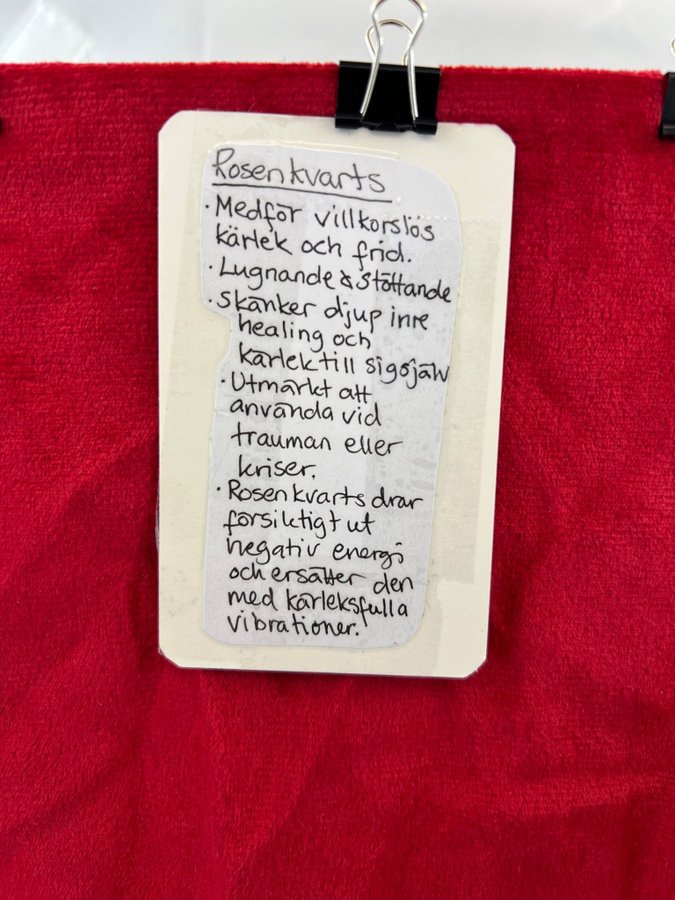 Rosenkvarts
· Medför villkorslös
kärlek och frid.
· Lugnande & Stöttande
· Skänker djup inre
healing och
kärlek till sigsjälv
· Utmärkt att
använda vid
trauman eller
kriser.
· Rosenkvarts drar
försiktigt ut
negativ energi
och ersätter den
med kärleksfulla
vibrationer.